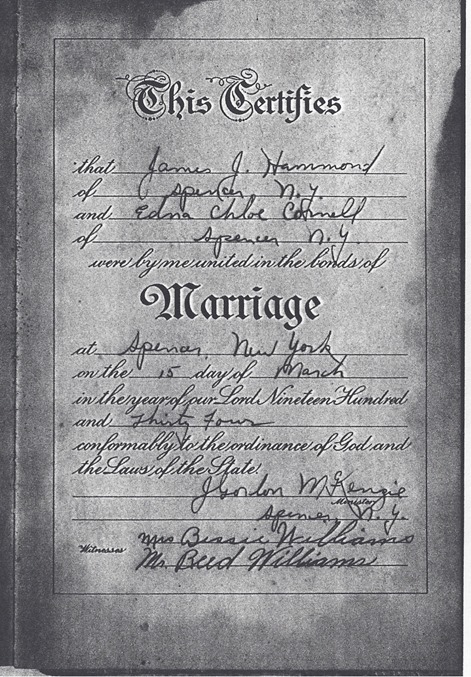 This Certifies
that James J. Hammond
of Spencer N.Y.
and Edna Chloe Cornell
of Spencer N.Y.
were by me united in the bonds of
Marriage
at Spencer, New York
on the 15 day of March
in the year of our Lord Nineteen Hundred
and Thirty Four
conformably to the ordinance of God and
the Laws of the State.
J Gordon McKenzie
Minister
Spencer, N.Y.
Mrs Bessie Williams
Witnesses
Mr. Reed Williams